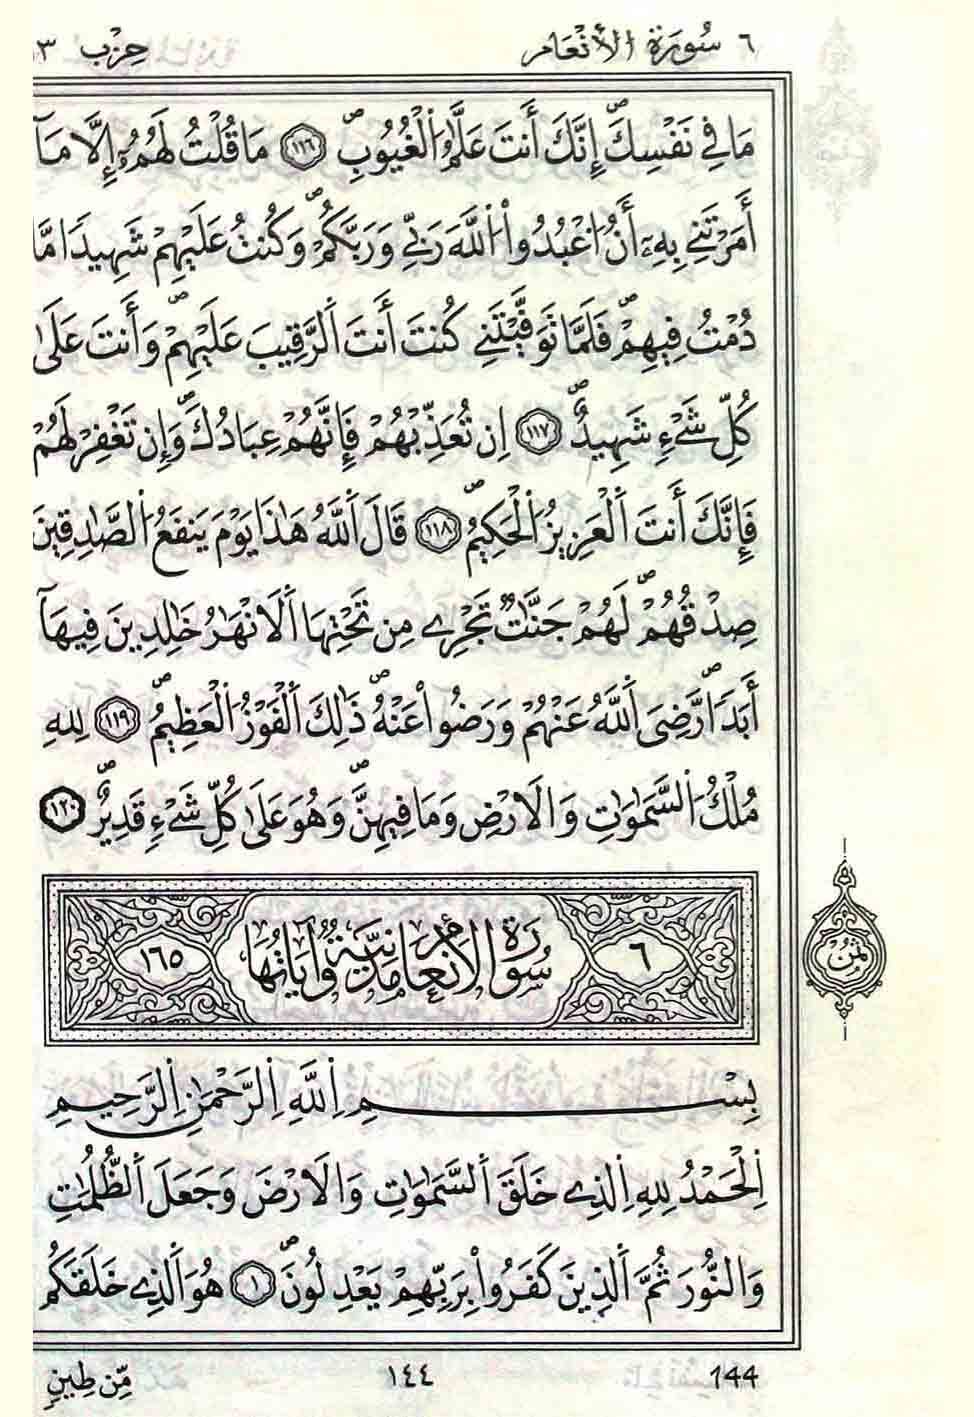 ٦ سُورَةُ الأَنْعَامِ حِزْب ١٣
مَا فِے نَفْسِكَۖ إِنَّكَ أَنتَ عَلَّٰمُ اُ۬لْغُيُوبِۖ ١١٦ مَا قُلْتُ لَهُمُۥٓ إِلَّا مَآ
أَمَرْتَنِے بِهِۦٓ أَنُ اُ۟عْبُدُواْ اُ۬للَّهَ رَبِّے وَرَبَّكُمْۖ وَكُنتُ عَلَيْهِمْ شَهِيداٗ مَّا
دُمْتُ فِيهِمْۖ فَلَمَّا تَوَفَّيْتَنِے كُنتَ أَنتَ اَ۬لرَّقِيبَ عَلَيْهِمْۖ وَأَنتَ عَلَىٰ
كُلِّ شَےْءٖ شَهِيدٌۖ ١١٧ اِن تُعَذِّبْهُمْ فَإِنَّهُمْ عِبَادُكَۖ وَإِن تَغْفِرْ لَهُمْ
فَإِنَّكَ أَنتَ اَ۬لْعَزِيزُ اُ۬لْحَكِيمُۖ ١١٨ قَالَ اَ۬للَّهُ هَٰذَا يَوْمَ يَنفَعُ اُ۬لصَّٰدِقِينَ
صِدْقُهُمْۖ لَهُمْ جَنَّٰتٞ تَجْرِے مِن تَحْتِهَا اَ۬لَانْهَٰرُ خَٰلِدِينَ فِيهَآ
أَبَداٗۖ رَّضِيَ اَ۬للَّهُ عَنْهُمْ وَرَضُواْ عَنْهُۖ ذَٰلِكَ اَ۬لْفَوْزُ اُ۬لْعَظِيمُۖ ١١٩ لِلهِ
مُلْكُ اُ۬لسَّمَٰوَٰتِ وَالَارْضِ وَمَا فِيهِنَّۖ وَهُوَ عَلَىٰ كُلِّ شَےْءٖ قَدِيرٌۖ ١٢٠
٦ سُورَةُ الأَنْعَامِ مَدَنِيَّةٌ وَآيَاتُهَا ١٦٥
ثُمُن
بِسْمِ اِ۬للَّهِ اِ۬لرَّحْمَٰنِ اِ۬لرَّحِيمِ
اِ۬لْحَمْدُ لِلهِ اِ۬لذِے خَلَقَ اَ۬لسَّمَٰوَٰتِ وَالَارْضَ وَجَعَلَ اَ۬لظُّلُمَٰتِ
وَالنُّورَ ثُمَّ اَ۬لذِينَ كَفَرُواْ بِرَبِّهِمْ يَعْدِلُونَۖ ١ هُوَ اَ۬لذِے خَلَقَكُم
مِّن طِينٖ ١٤٤ 144